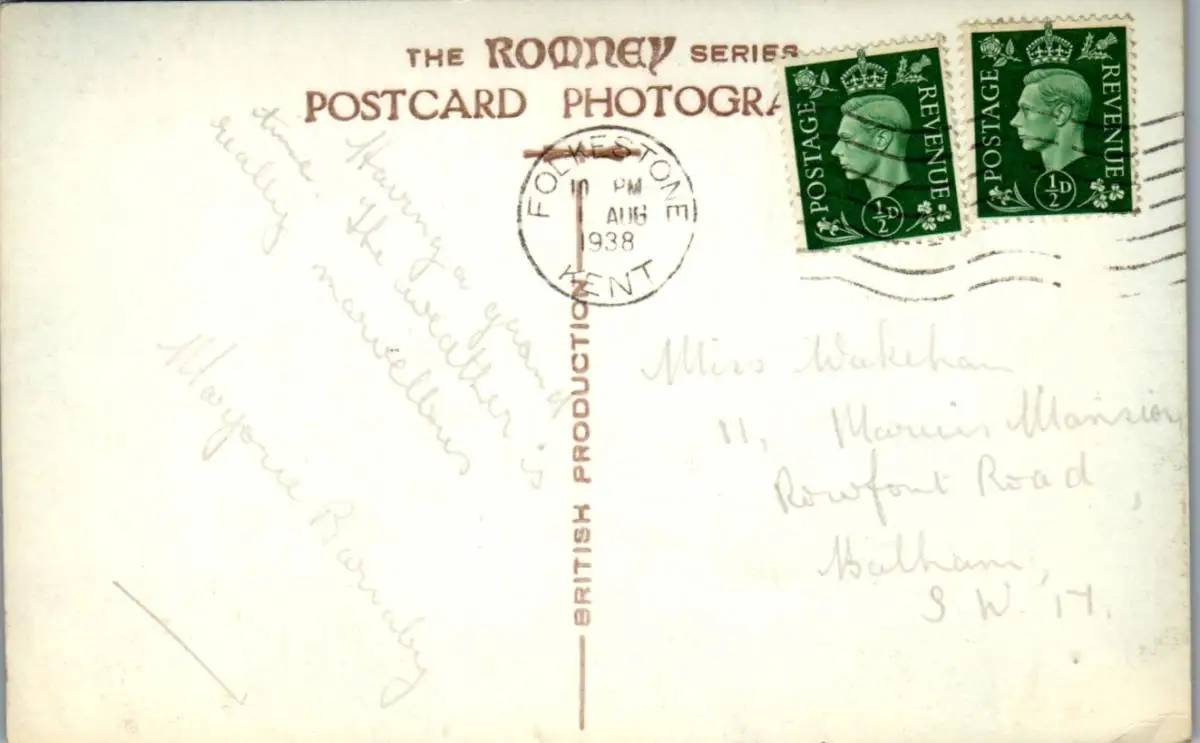 THE ROMNEY SERIES
POSTCARD PHOTOGRA
POSTAGE REVENUE
½D
POSTAGE REVENUE
½D
FOLKESTONE
10 PM
AUG
1938
KENT
BRITISH PRODUCTION
Having a grand
time. The weather is
really marvellous
Marjorie Barnaby
Miss Wakeham
11, Mansion
Rowfant Road,
Balham,
S W. 17.